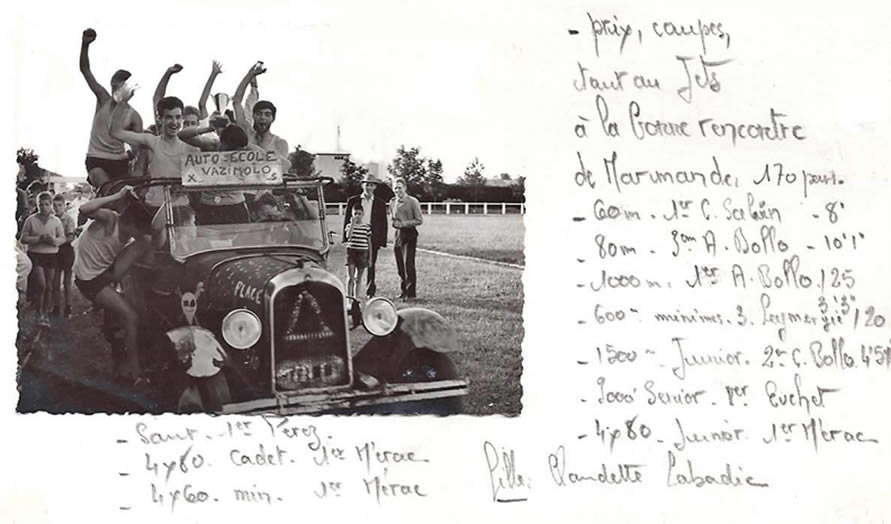 AUTO-ECOLE
X VAZIMOLO S
PLACE
- prix, coupes,
tant au Jets
à la bonne rencontre
de Marmande, 170 part.
- 60m - 1er C. Salvin - 8"
- 80m - 3em A. Bollo - 10'1"
- 1000m. 1er A. Bollo / 25
- 600m minimes. 3. 3'3" / 20
- 1500m Junior. 2e C. Bollo. 4'5
- 3000 Senior. 1er Euchet
- 4x80. Junior. 1er Mérac
- Saut - 1er Perez.
- 4x80. Cadet. 1er Mérac
- 4x60. min. 1er Mérac
Fille: Claudette Labadie